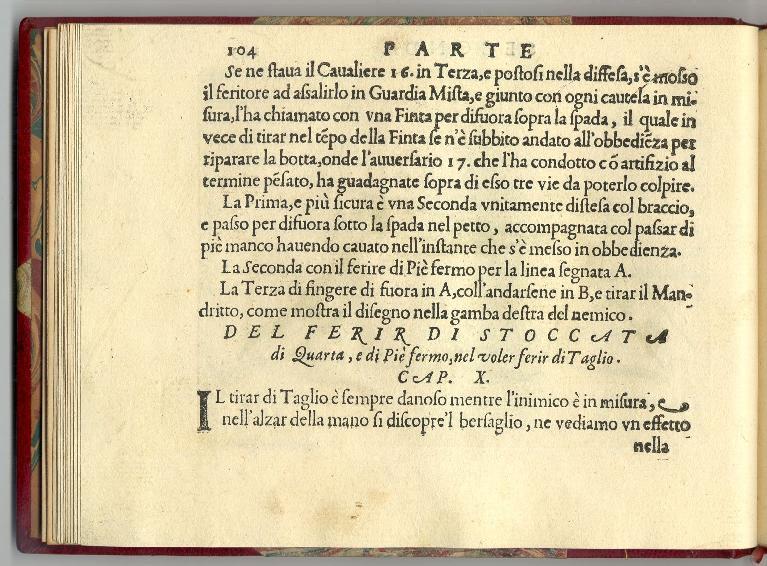 104 PARTE
Se ne ſtaua il Caualiere 16. in Terza, e poſtoſi nella diffeſa, s'è moſſo
il feritore ad aſsalirlo in Guardia Miſta, e giunto con ogni cautela in mi-
ſura, l'ha chiamato con vna Finta per diſuora ſopra la ſpada, il quale in
vece di tirar nel tẽpo della Finta ſe n'è ſubbito andato all'obbediẽza per
riparare la botta, onde l'auuerſario 17. che l'ha condotto cõ artifizio al
termine pẽſato, ha guadagnate ſopra di eſso tre vie da poterlo colpire.
La Prima, e più ſicura è vna Seconda vnitamente diſteſa col braccio,
e paſso per difuora ſotto la ſpada nel petto, accompagnata col paſsar di
piè manco hauendo cauato nell'inſtante che s'è meſso in obbedienza.
La Seconda con il ferire di Piè fermo per la linea ſegnata A.
La Terza di fingere di fuora in A, coll'andarſene in B, e tirar il Man-
dritto, come moſtra il diſegno nella gamba deſtra del nemico.
DEL FERIR DI STOCCATA
di Quarta, e di Piè fermo, nel voler ferir di Taglio.
CAP. X.
IL tirar di Taglio è ſempre danoſo mentre l'inimico è in miſura, e
nell'alzar della mano ſi diſcopre'l berſaglio, ne vediamo vn effetto
nella